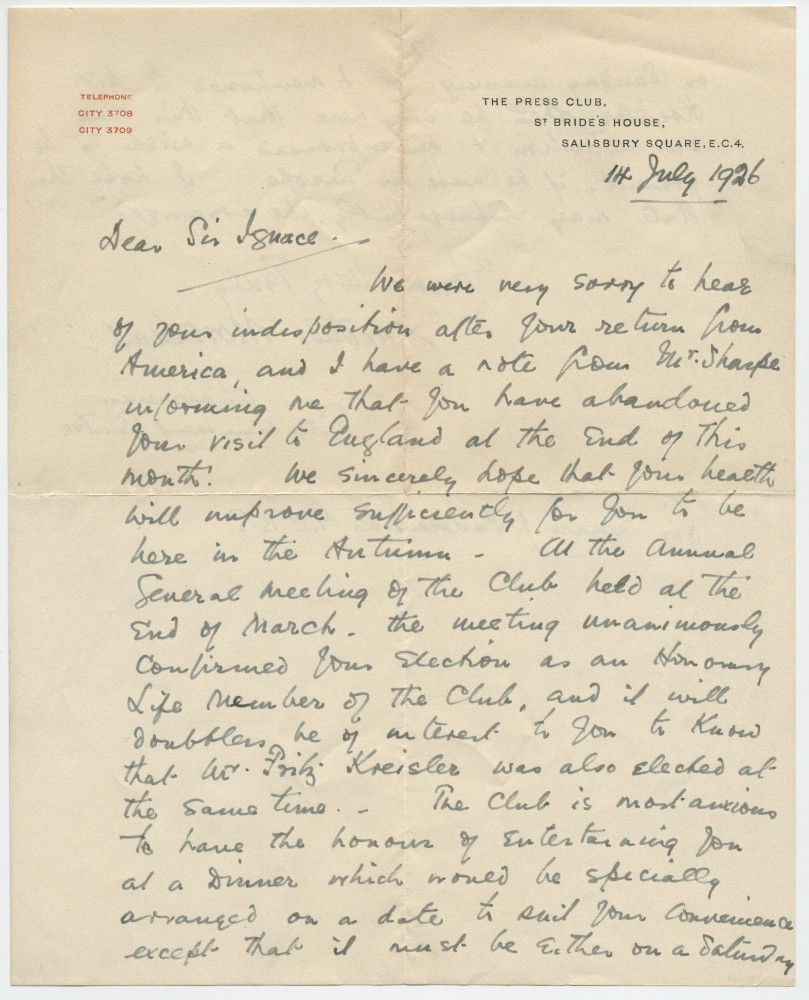 TELEPHONE
CITY 3708
CITY 3709
THE PRESS CLUB,
ST BRIDE'S HOUSE,
SALISBURY SQUARE, E.C.4.
14 July 1926
Dear Sir Ignace. -
We were very sorry to hear
of your indisposition after your return from
America, and I have a note from Mr. Sharpe
informing me that you have abandoned
your visit to England at the end of this
month! We sincerely hope that your health
will improve sufficiently for you to be
here in the Autumn - At the Annual
General Meeting of the Club held at the
End of March - the meeting unanimously
confirmed your election as an Honorary
Life Member of the Club, and it will
doubtless be of interest to you to know
that Mr. Fritz Kreisler was also elected at
the same time. - The Club is most anxious
to have the honour of entertaining you
at a Dinner which would be specially
arranged on a date to suit your convenience
except that it must be either on a Saturday